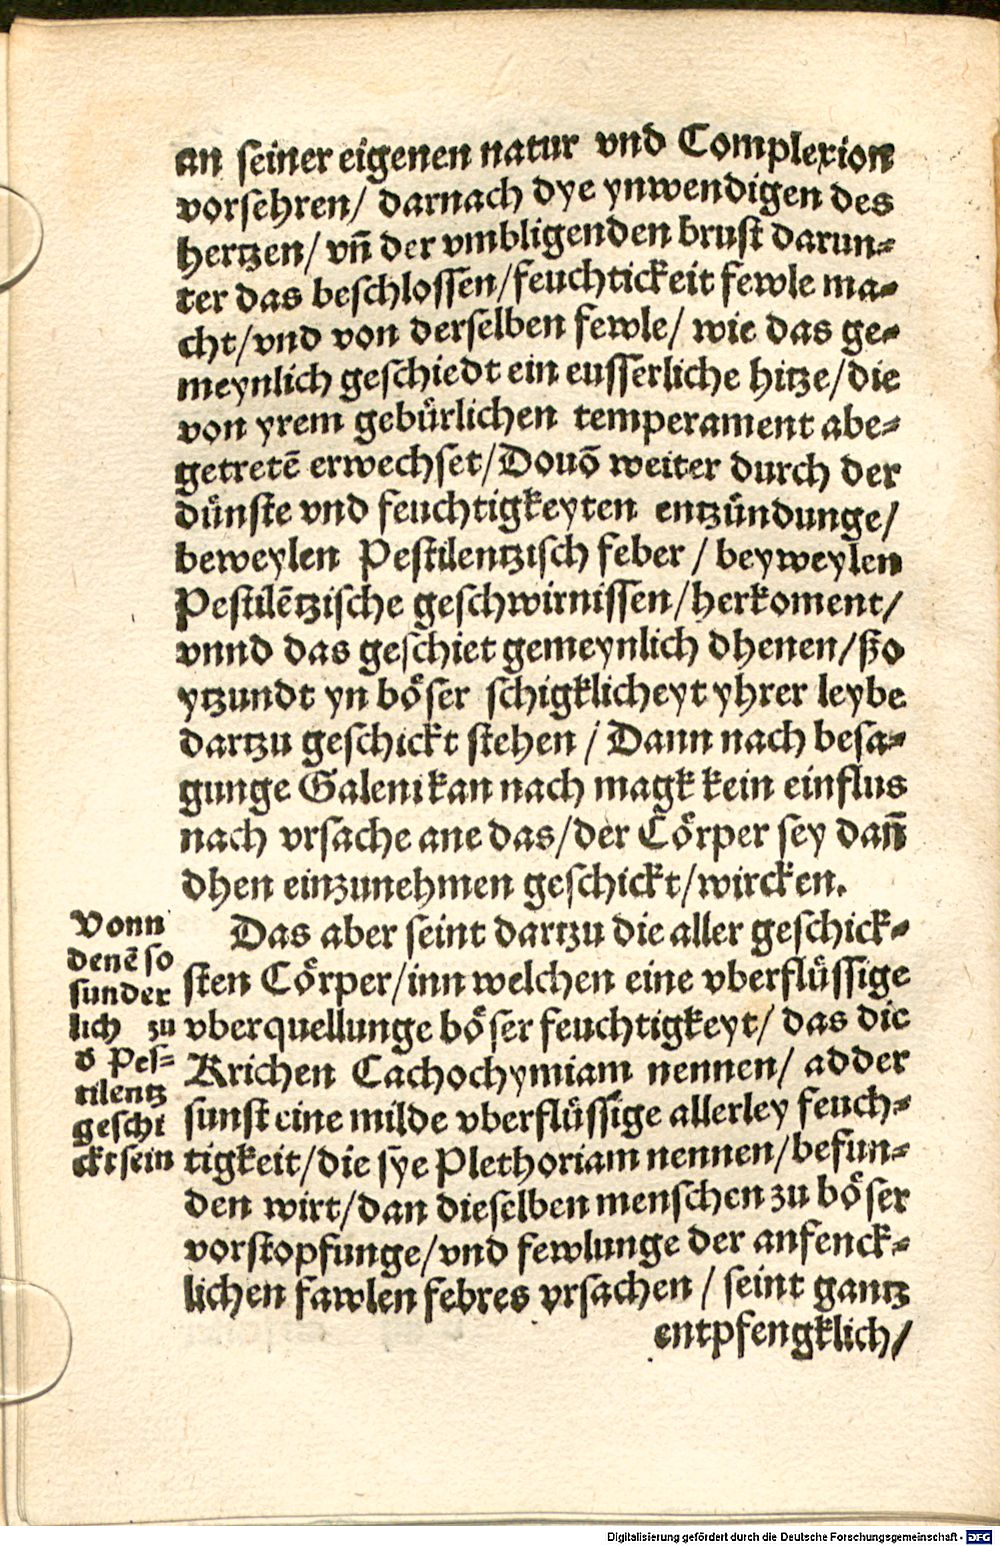 an seiner eigenen natur vnd Complexion
vorsehren/ darnach dye ynwendigen des
hertzen/ vn̄ der vmbligenden brust darun⸗
ter das beschlossen/feuchtickeit fewle ma⸗
cht/vnd von derselben fewle/ wie das ge⸗
meynlich geschiedt ein eusserliche hitze/die
von yrem gebürlichen temperament abe⸗
getretē erwechset/Douō weiter durch der
dünste vnd feuchtigkeyten entzündunge/
beweylen Pestilentzisch feber / beyweylen
Pestilētzische geschwirnissen/herkoment/
vnnd das geschiet gemeynlich dhenen/ßo
ytzundt yn böser schigklicheyt yhrer leybe
dartzu geschickt stehen / Dann nach besa⸗
gunge Galeni kan nach magk kein einflus
nach vrsache ane das/der Cörper sey dan̄
dhen einzunehmen geschickt/wircken.
Vonn
denē so
sunder
lich zu
d̕ Pes⸗
tilentz
geschi
ckt sein
Das aber seint dartzu die aller geschick⸗
sten Cörper/inn welchen eine vberflüssige
vberquellunge böser feuchtigkeyt/ das die
Krichen Cachochymiam nennen/ adder
sunst eine milde vberflüssige allerley feuch⸗
tigkeit/die sye Plethoriam nennen/befun⸗
den wirt/dan dieselben menschen zu böser
vorstopfunge/vnd fewlunge der anfenck⸗
lichen fawlen febres vrsachen / seint gantz
entpfengklich/
Digitalisierung gefördert durch die Deutsche Forschungsgemeinschaft - DFG